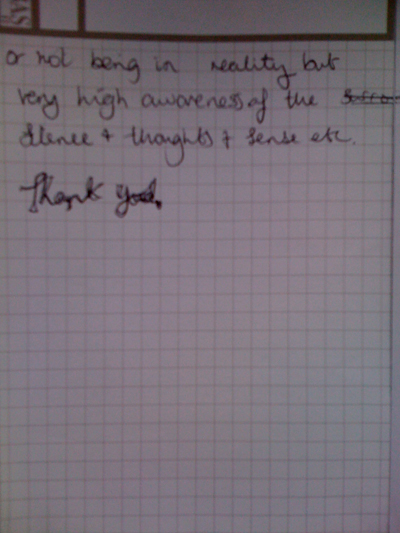 or not being in reality but
very high awareness of the
silence + thoughts + sense etc.
Thank you.